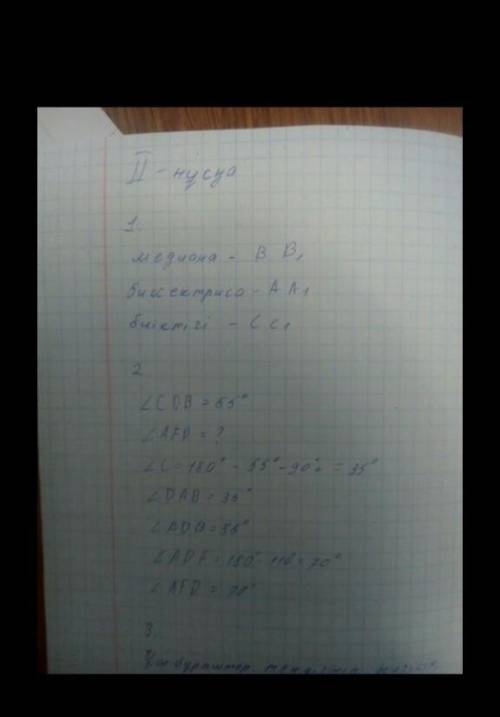 II - нұсқа
1.
медиана - B B₁
биссектриса - A A₁
биіктігі - C C₁
2
∠CDB = 55°
∠AFD = ?
∠C = 180° - 55° - 90° = 35°
∠DAB = 35°
∠ADB = 55°
∠ADF = 180° - 110 = 70°
∠AFD =
3.